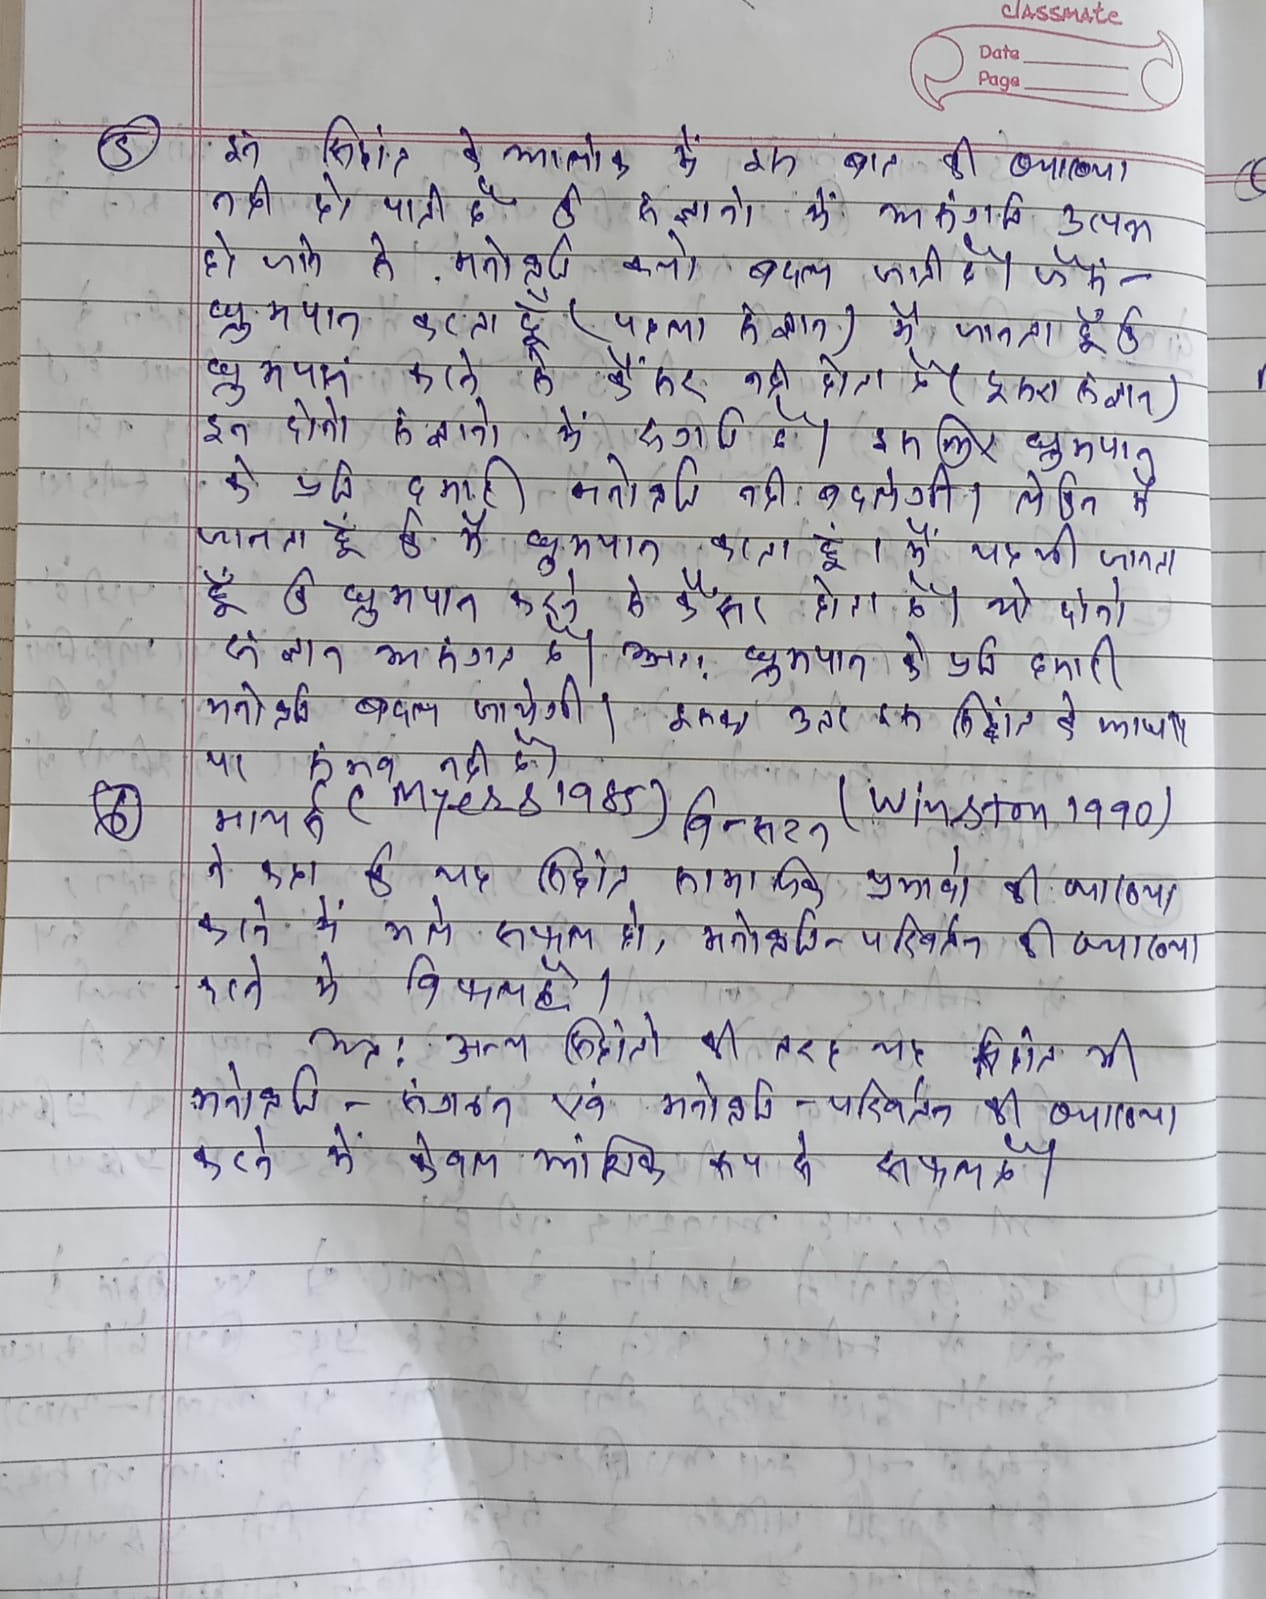 classmate
Date
Page
⑤ इन सिद्धांत के आलोक में इस बात की व्याख्या
नही हो पाती है कि संज्ञानो में असंगति उत्पन्न
हो जाने से मनोवृति क्यो बदल जाती है। जैसे -
धुम्रपान करता हूँ (पहला संज्ञान) मैं जानता हूँ कि
धुम्रपान करने से कैंसर नही होता है (दूसरा संज्ञान)
इन दोनो संज्ञानो में संगति है। इसलिए धुम्रपान
के प्रति हमारी मनोवृति नही बदलेगी। लेकिन मैं
जानता हूं कि मैं धुम्रपान करता हूं। मैं यह भी जानता
हूँ कि धुम्रपान करने से कैंसर होता है। ये दोनो
संज्ञान असंगत है। अतः धुम्रपान के प्रति हमारी
मनोवृति बदल जायेगी। इसका उतर इस सिद्धांत के आधार
पर संभव नही है।
⑥ मायर्स (Myers 1985) विन्सटन (Winston 1990)
ने कहा कि यह सिद्धांत सामाजिक प्रभावो की व्याख्या
करने में भले सफल हो, मनोवृति - परिवर्तन की व्याख्या
करने मे विफल है।
अतः अन्य सिद्धांतो की तरह यह सिद्धांत भी
मनोवृति - संगठन एवं मनोवृति - परिवर्तन की व्याख्या
करने में केवल आंशिक रूप से सफल है।